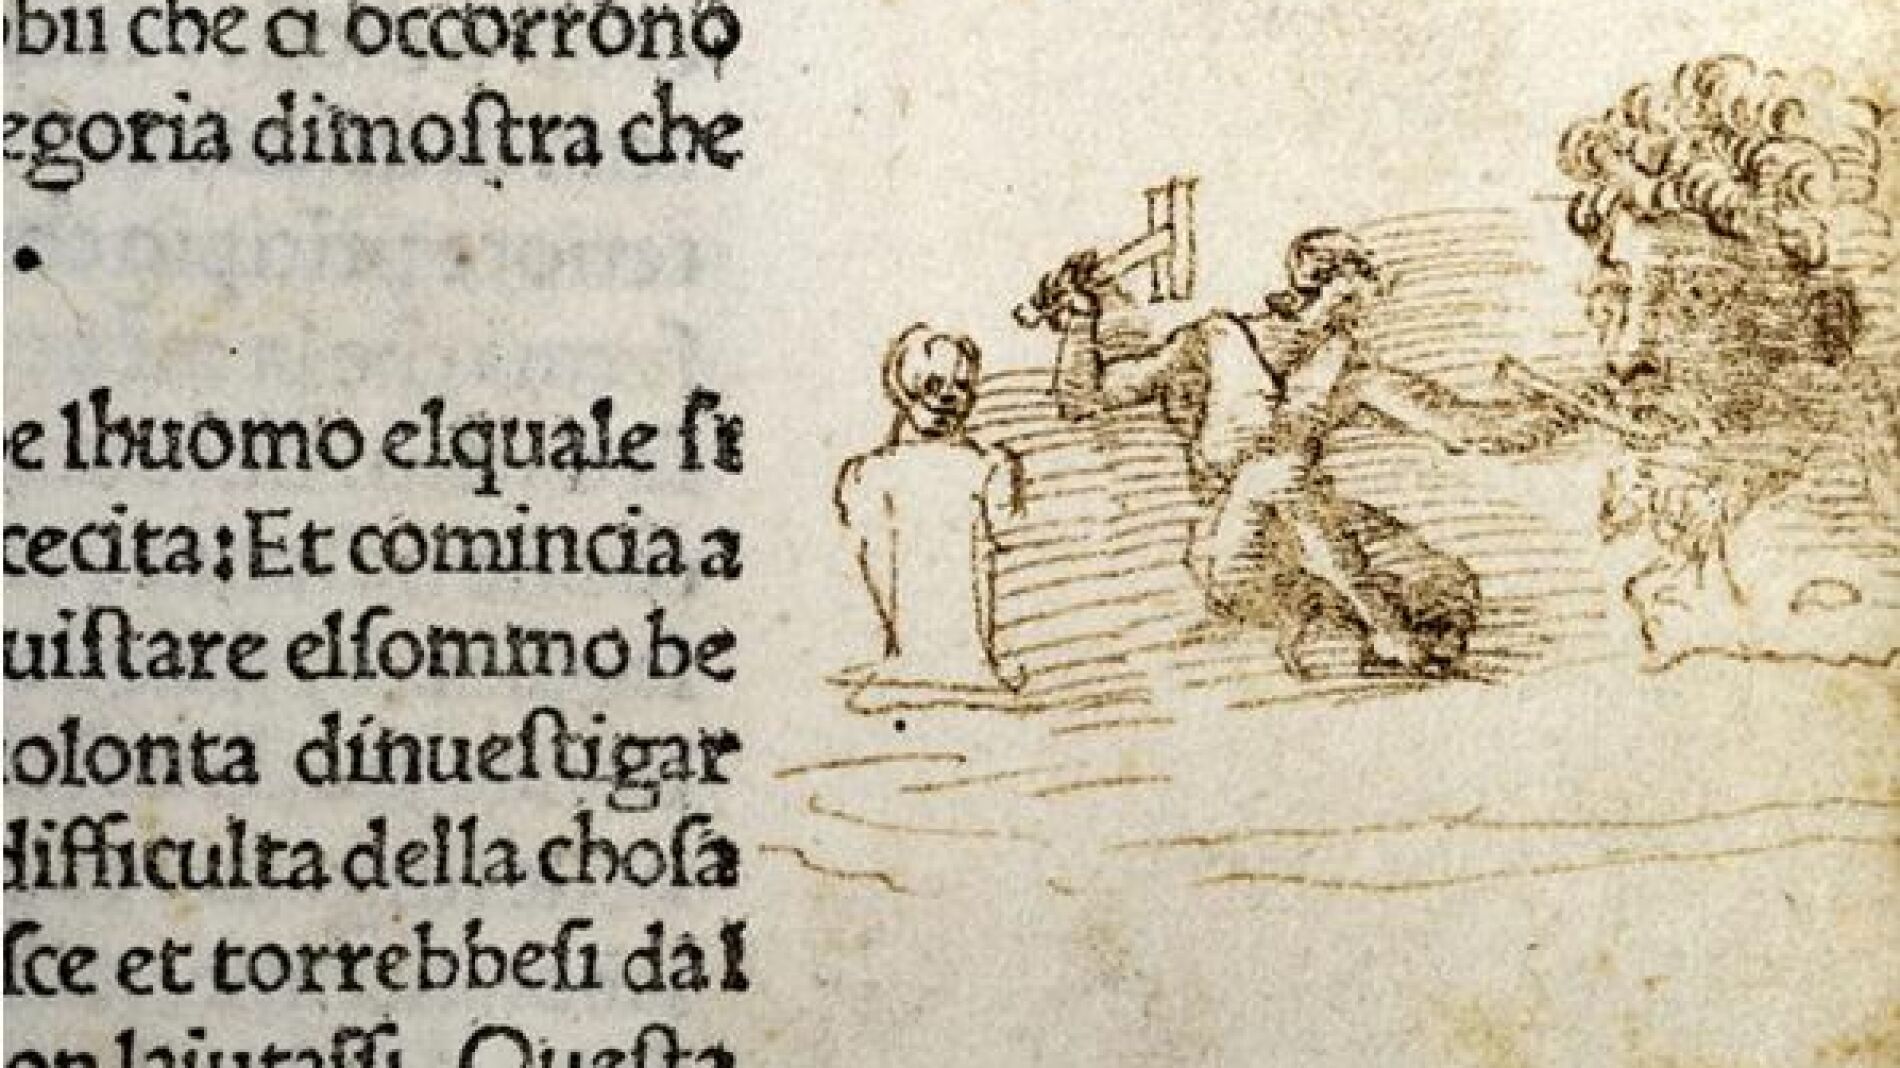 obii che ci occorrono
egoria dimoſtra che
e lhuomo elquale ſi
cecita: Et comincia a
uiſtare elſommo be
uolonta dinueſtigar
difficulta della choſa
ſce et torrebbeſi dal
on laiutaſſi. Queſta